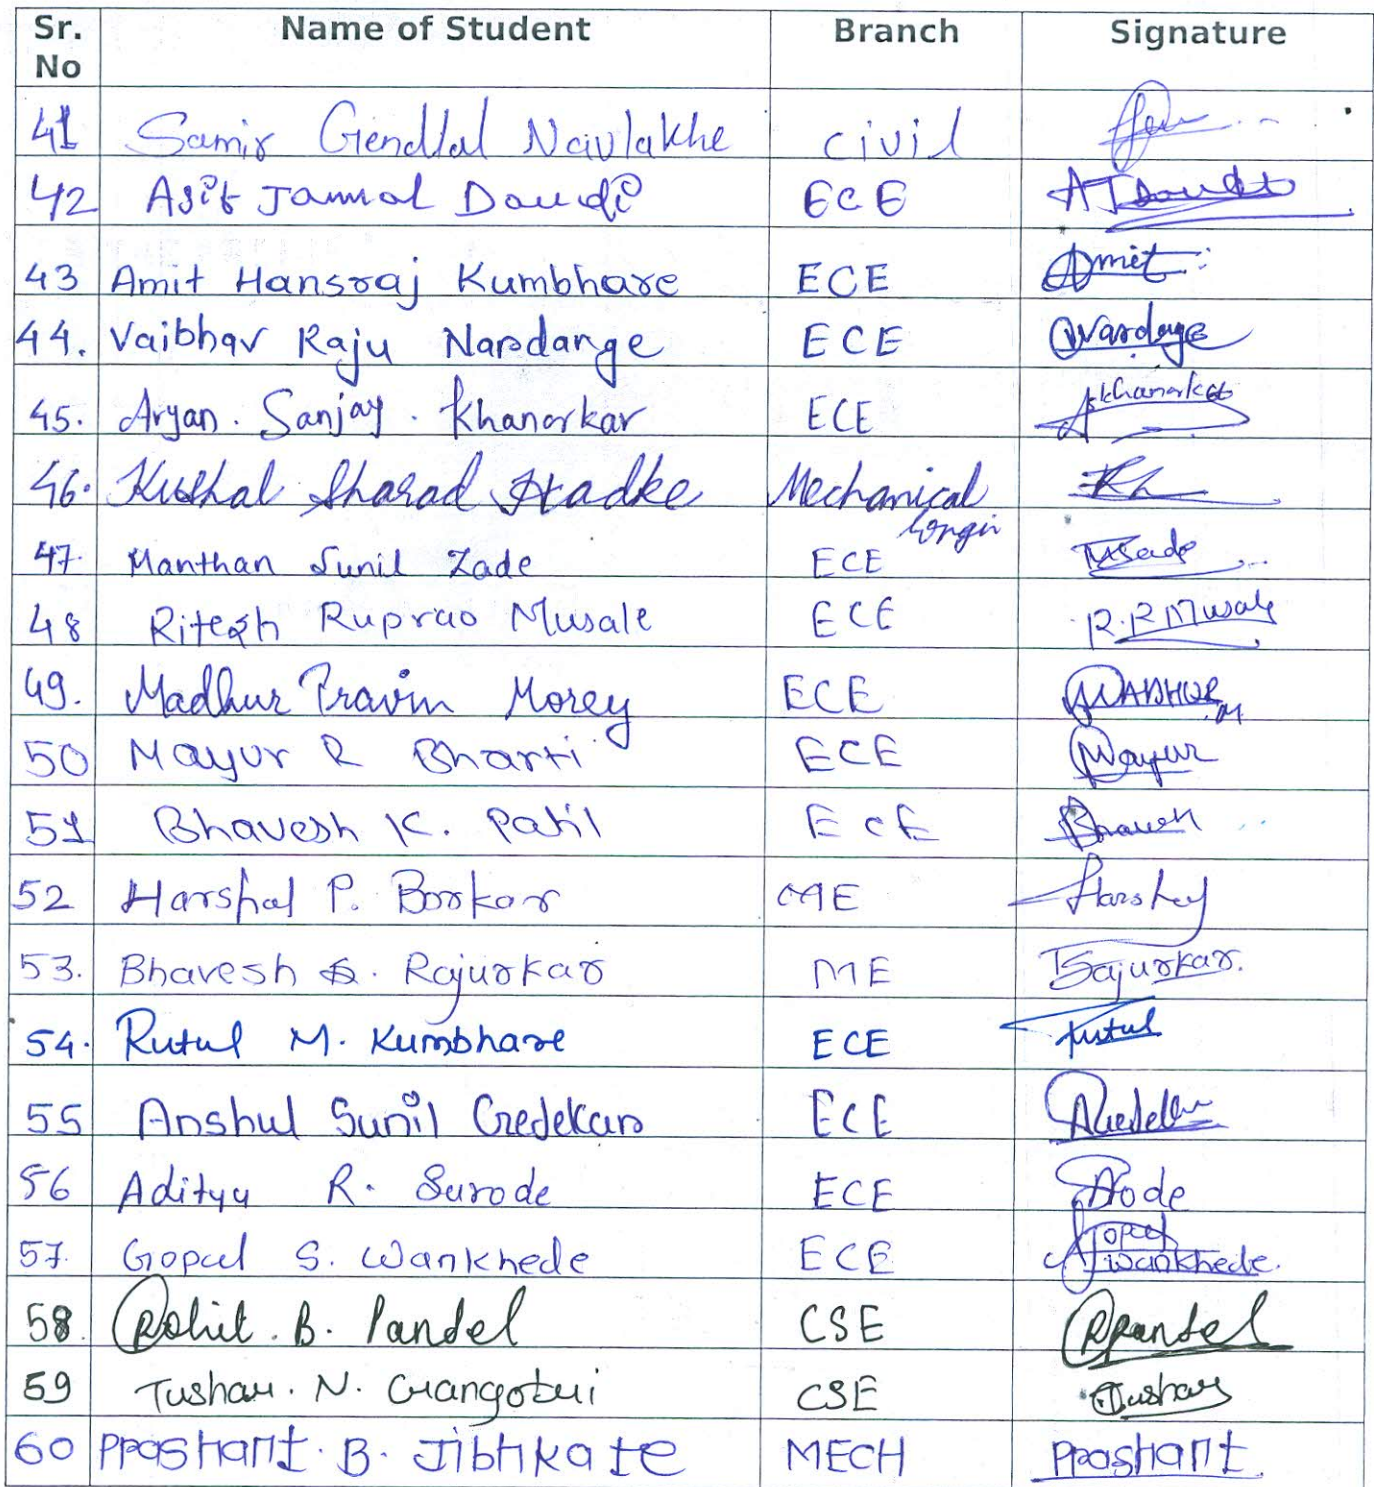 Sr. No Name of Student Branch Signature
41 Samir Gendlal Navlakhe civil
42 Asif Jammal Daudi ECE AJDaudi
43 Amit Hansraj Kumbhare ECE Amit
44. Vaibhav Raju Nardange ECE Nardange
45. Aryan. Sanjay. Khanorkar ECE Khanorkar
46. Kushal Sharad Hadke Mechanical Engin
47. Manthan Sunil Zade ECE
48 Ritesh Ruprao Musale ECE R.R Musale
49. Madhur Pravin Morey ECE MADHUR.M
50 Mayur R Bharti ECE Mayur
51 Bhavesh K. Patil ECE Bhavesh
52 Harshal P. Borkar ME Harshal
53. Bhavesh S. Rajurkar ME Rajurkar.
54. Rutul M. Kumbhare ECE Rutul
55 Anshul Sunil Gedekar ECE
56 Aditya R. Surode ECE
57. Gopal S. Wankhede ECE Gopal Wankhede.
58. Rohit. B. Pandel CSE RPandel
59 Tushar. N. Gangotri CSE Tushar
60 Prashant. B. Jibhkate MECH Prashant.